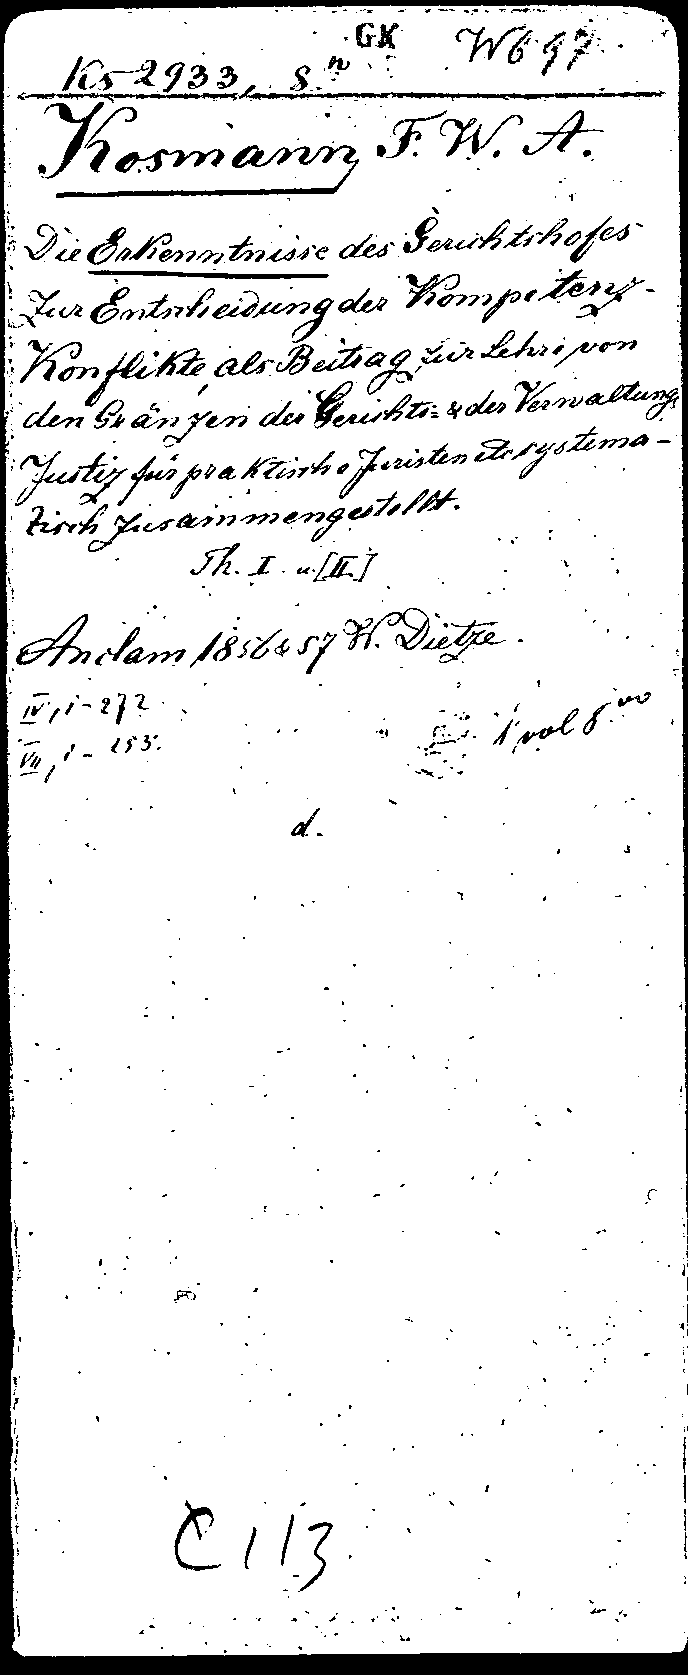 GK W697
Ks 2933, 8.n
Kosmann, F. W. A.
Die Erkenntnisse des Gerichtshofes
zur Entscheidung der Kompetenz-
Konflikte, als Beitrag zur Lehre von
den Gränzen der Gerichts= & der Verwaltungs
Justiz für praktische Juristen etc systema-
tisch zusammengestellt.
Th. I. u. [II.]
Anclam 1856 & 57 W. Dietze.
IV, 1-272
VII, 1-253.
1 vol 8vo
d.
C 113